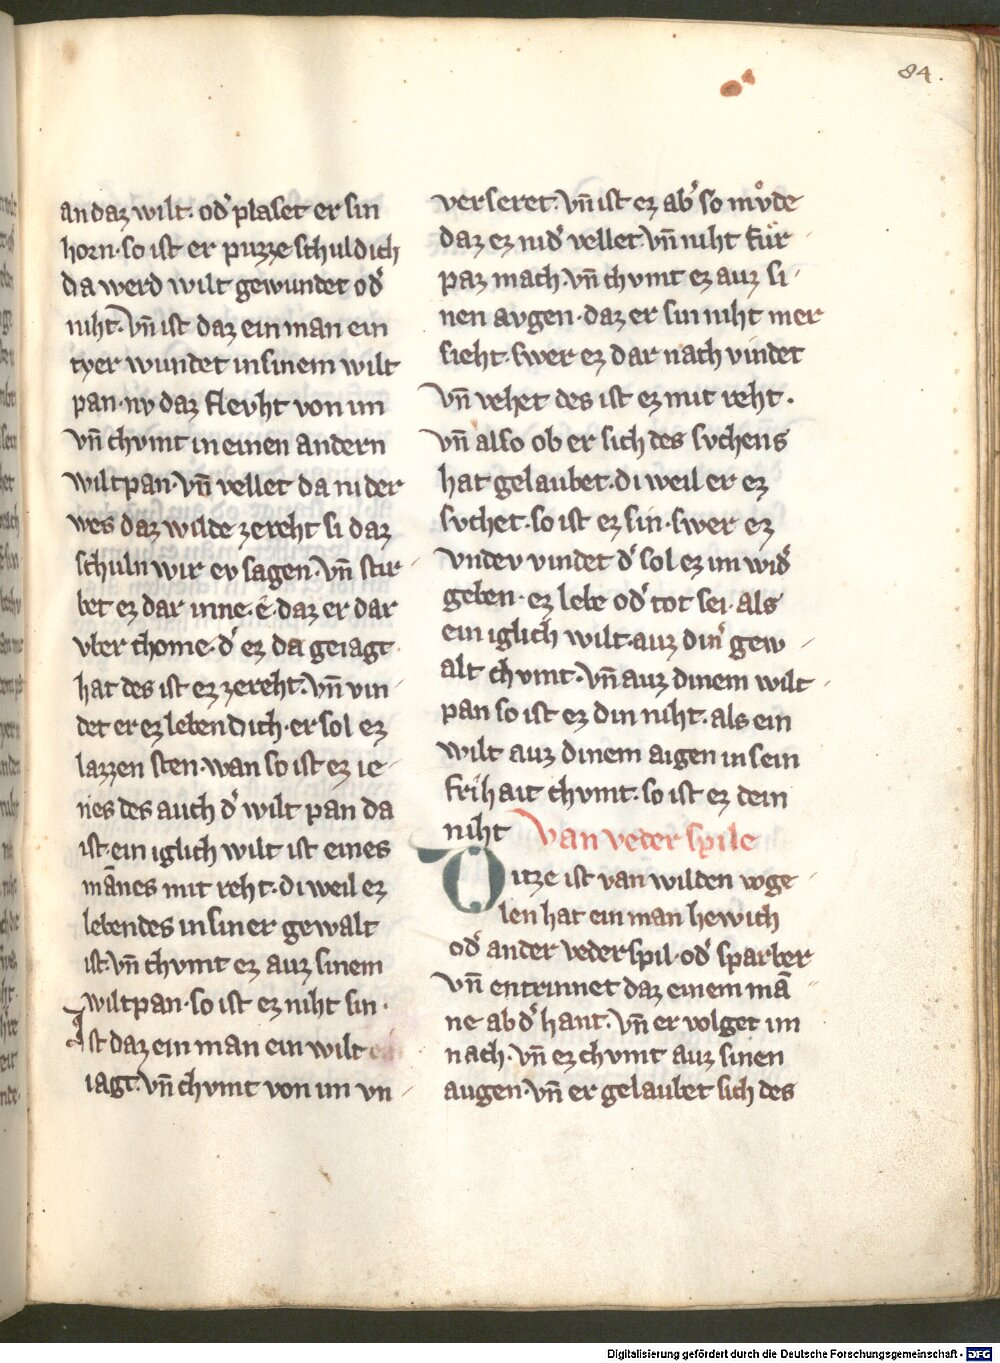 84.
an daz wilt. od͛ plaset er sin
horn. so ist er puzze schuldich
da werd wilt gewundet od͛
niht. Vn̄ ist daz ein man ein
tyer wundet in sinem wilt
pan. nv daz flevht von im
vn̄ chvmt in einen andern
wiltpan. vn̄ vellet da nider
wes daz wilde ze reht si daz
schuln wir ev sagen. vn̄ stir
bet ez dar inne. e. daz er dar
vber chome. d͛ ez da geiagt
hat des ist ez ze reht. vn̄ vin
det er ez lebendich. er sol ez
lazzen sten. wan so ist ez ie
nes des auch d͛ wilt pan da
ist. ein iglich wilt ist eines
mānes mit reht. di weil ez
lebendes in siner gewalt
ist. vn̄ chvmt ez auz sinem
wiltpan. so ist ez niht sin.
Ist daz ein man ein wilt
iagt. vn̄ chvmt von im vn
verseret. vn̄ ist ez ab͛ so mvͦde
daz ez nid͛ vellet. vn̄ niht fur
paz mach. vn̄ chvmt ez auz si
nen avgen. daz er sin niht mer
sieht. swer ez dar nach vindet
vn̄ vehet des ist ez mit reht.
vn̄ also ob er sich des svchens
hat gelaubet. di weil er ez
svchet. so ist ez sin. swer ez
vndev vindet d͛ sol ez im wid͛
geben. ez lebe od͛ tot sei. als
ein iglich wilt. auz din͛ gew
alt chvmt. vn̄ auz dinem wilt
pan so ist ez din niht. als ein
wilt auz dinem aigen in sein
frihait chvmt. so ist ez dein
niht Van veder spile
Ditze ist van wilden voge
len hat ein man hewich
od͛ ander vederspil. od͛ sparber
vn̄ entrinnet daz einem mā
ne ab d͛ hant. vn̄ er volget im
nach. vn̄ ez chvmt auz sinen
augen. vn̄ er gelaubet sich des
Digitalisierung gefördert durch die Deutsche Forschungsgemeinschaft - DFG